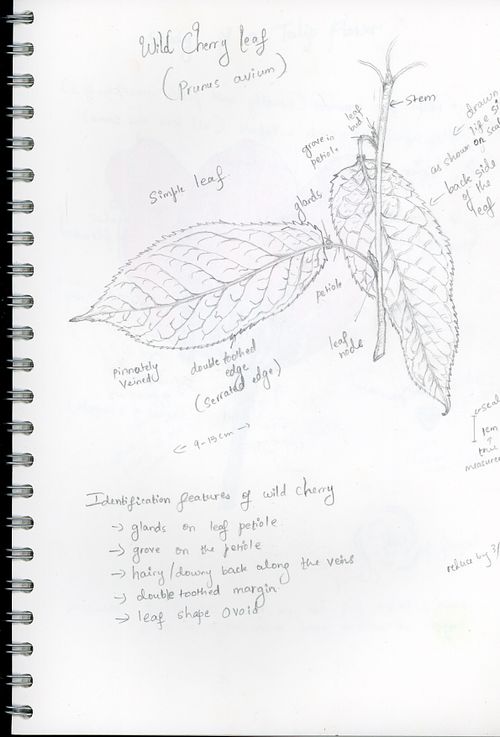 Wild Cherry leaf
(Prunus avium)
stem
leaf
bud
grove in
petiole
drawn
life si
as shown on scal
back side
of the
leaf
Simple leaf.
glands
petiole
leaf
node
pinnately
veined
double toothed
edge
(serrated edge)
<- 9-15cm ->
scal
1cm
true
measurem
Identification features of wild cherry
-> glands on leaf petiole.
-> grove on the petiole
-> hairy/downy back along the veins
-> double toothed margin
-> leaf shape Ovoid
reduce by 3/